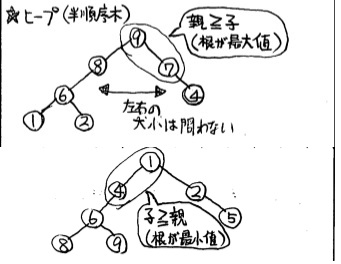 ☆ヒープ(半順序木)
親≧子
(根が最大値)
9
8
7
6
4
1
2
左右の
大小は問わない
1
4
2
6
5
8
9
子≧親
(根が最小値)